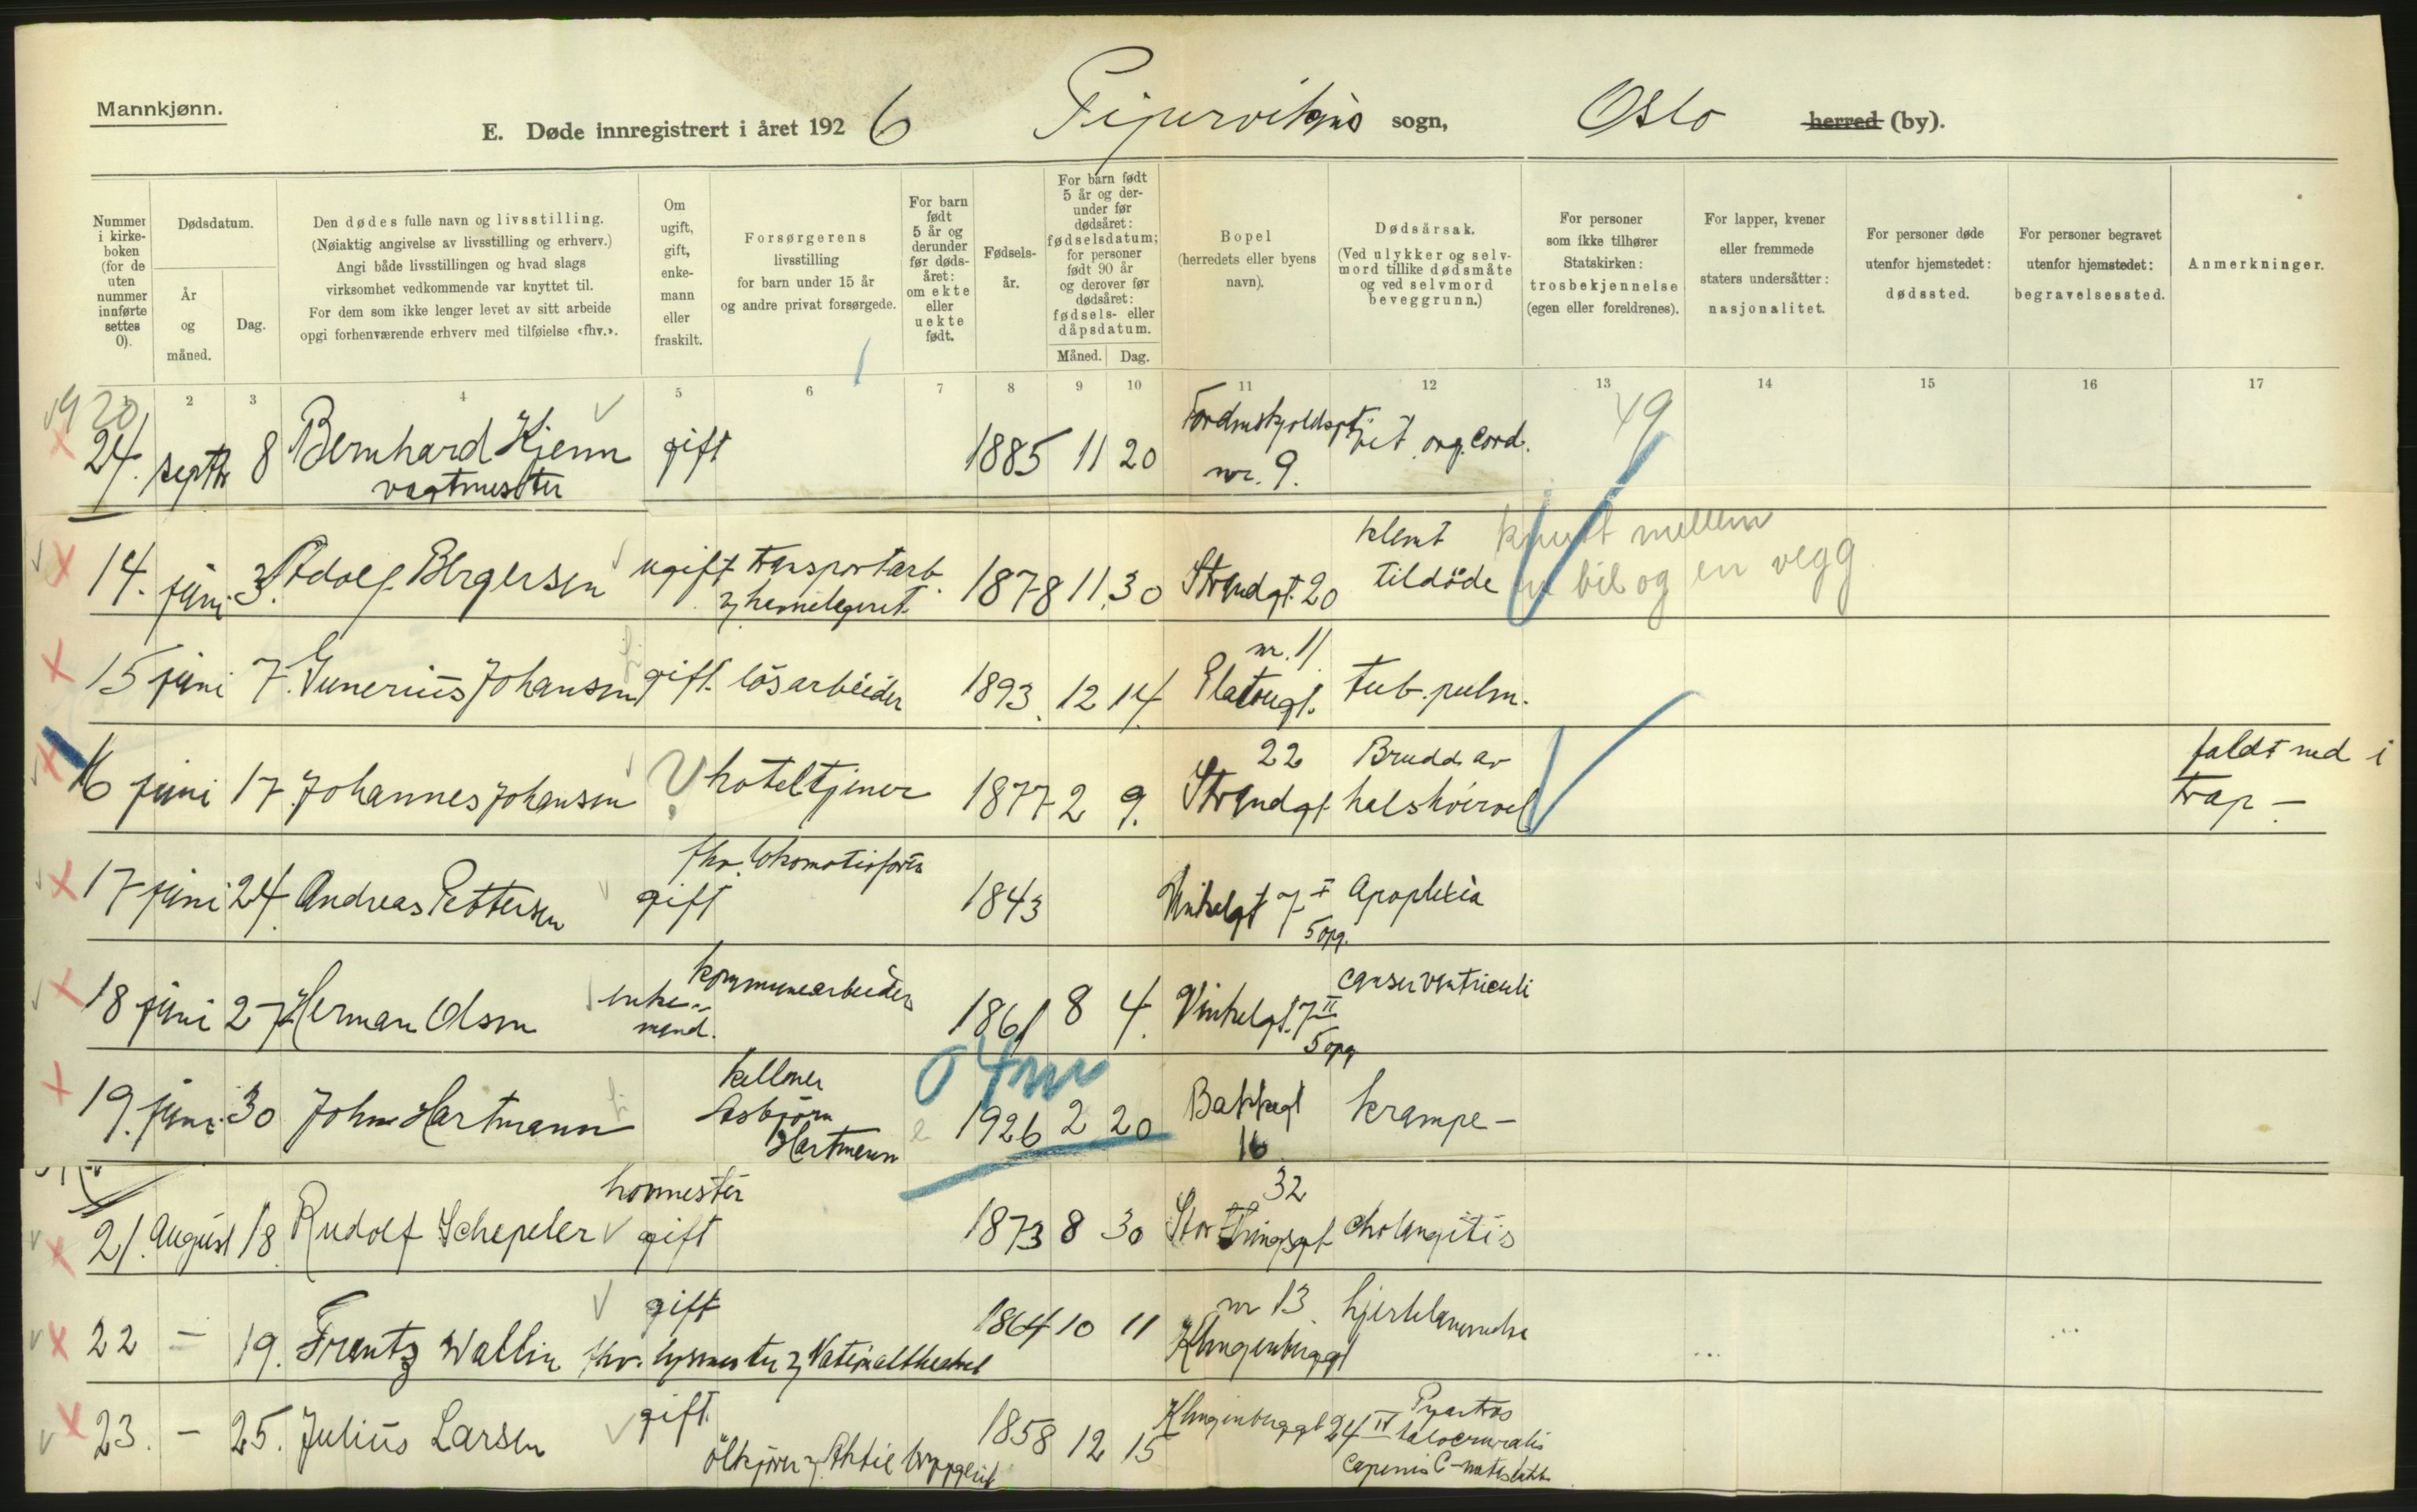 Mannkjønn.
E. Døde innregistrert i året 1926 Pipervikens sogn, Oslo herred (by).
Nummer i kirkeboken (for de uten nummer innførte settes 0).
Dødsdatum.
År og måned.
Dag.
Den dødes fulle navn og livsstilling.
(Nøiaktig angivelse av livsstilling og erhverv.)
Angi både livsstillingen og hvad slags
virksomhet vedkommende var knyttet til.
For dem som ikke lenger levet av sitt arbeide
opgi forhenværende erhverv med tilføielse «fhv.».
Om ugift, gift, enkemann eller fraskilt.
Forsørgerens
livsstilling
for barn under 15 år
og andre privat forsørgede.
For barn født 5 år og derunder før dødsåret: om ekte eller uekte født.
Fødselsår.
For barn født 5 år og derunder før dødsåret: fødselsdatum; for personer født 90 år og derover før dødsåret: fødsels- eller dåpsdatum.
Måned. Dag.
Bopel
(herredets eller byens
navn).
Dødsårsak.
(Ved ulykker og selvmord tillike dødsmåte og ved selvmord beveggrunn.)
For personer
som ikke tilhører
Statskirken:
trosbekjennelse
(egen eller foreldrenes).
For lapper, kvener
eller fremmede
staters undersåtter:
nasjonalitet.
For personer døde
utenfor hjemstedet:
dødssted.
For personer begravet
utenfor hjemstedet:
begravelsessted.
Anmerkninger.
1 2 3 4 5 6 7 8 9 10 11 12 13 14 15 16 17
20
24. septbr 8 Bernhard Hjem gift 1885 11 20 Tordenskjoldsgt. nr. 9. vit. org. cord. 49
vagtmester
14. juni 3. Adolf Bergersen ugift transportarb. 1878 11. 30 Strandgt. 20 klemt tildöde mellem
bil og en vegg
15 juni 7. Gunerius Johansen gift. lösarbeider 1893. 12 14 nr. 11 Platougt. tub. pulm.
16 juni 17. Johannes Johansen ? hoteltjener 1877 2 9. 22 Strandgt. Brudd av halshvirvel faldt ned i
trap –
17 juni 24. Andreas Pettersen gift fhv. lokomotivförer 1843 Vinkelgt 7 I 5 opg. Apoplexia
18 juni 27 Herman Olsen enkemand. kommunearbeider 1861 8 4. Vinkelgt. 7 II 5 opg canser ventriculi
19. juni 30 John Hartmann kellner Asbjörn Hartmann e 1926 2 20 Bakkegt 16 krampe –
21. August 18. Rudolf Schepeler hovmester gift 1873 8 30 Stortingsgt 32 cholangitis
22 – 19. Frantz Wallin gift 1864 10 11 nr 13. Klingenberggt hjertelammelse
fhv. lysmester v Nationaltheatret
23. – 25. Julius Larsen gift. 1858 12 15 Klingenberggt 24 IV
ölkjörer v. Aktie bryggeriet